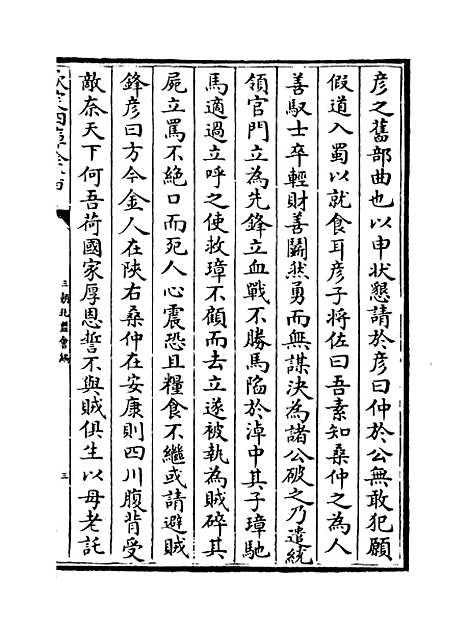 彦之舊部曲也以申狀懇請於彦曰仲於公無敢犯願
假道入蜀以就食耳彦子將佐曰吾素知桑仲之為人
善馭士卒輕財善鬭然勇而無謀決為諸公破之乃遣統
領官門立為先鋒立血戰不勝馬陷於淖中其子璋馳
馬適過立呼之使救璋不顧而去立遂被執為賊碎其
屍立罵不絶口而死人心震恐且糧食不繼或請避賊
鋒彦曰方今金人在陜右桑仲在安康則四川腹背受
敵奈天下何吾荷國家厚恩誓不與賊俱生以母老託
欽定四庫全書
三朝北盟會編
三